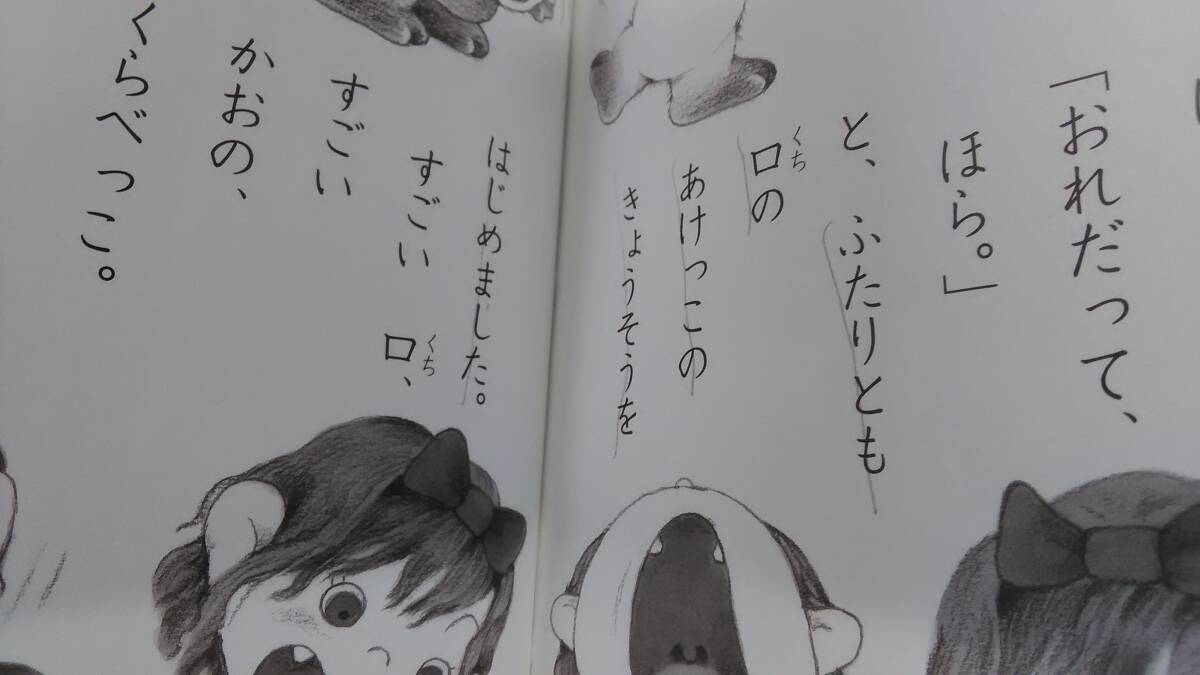 「おれだって、
ほら。」
と、ふたりとも
口の
くち
あけっこの
きょうそうを
はじめました。
すごい 口、
くち
すごい
かおの、
くらべっこ。